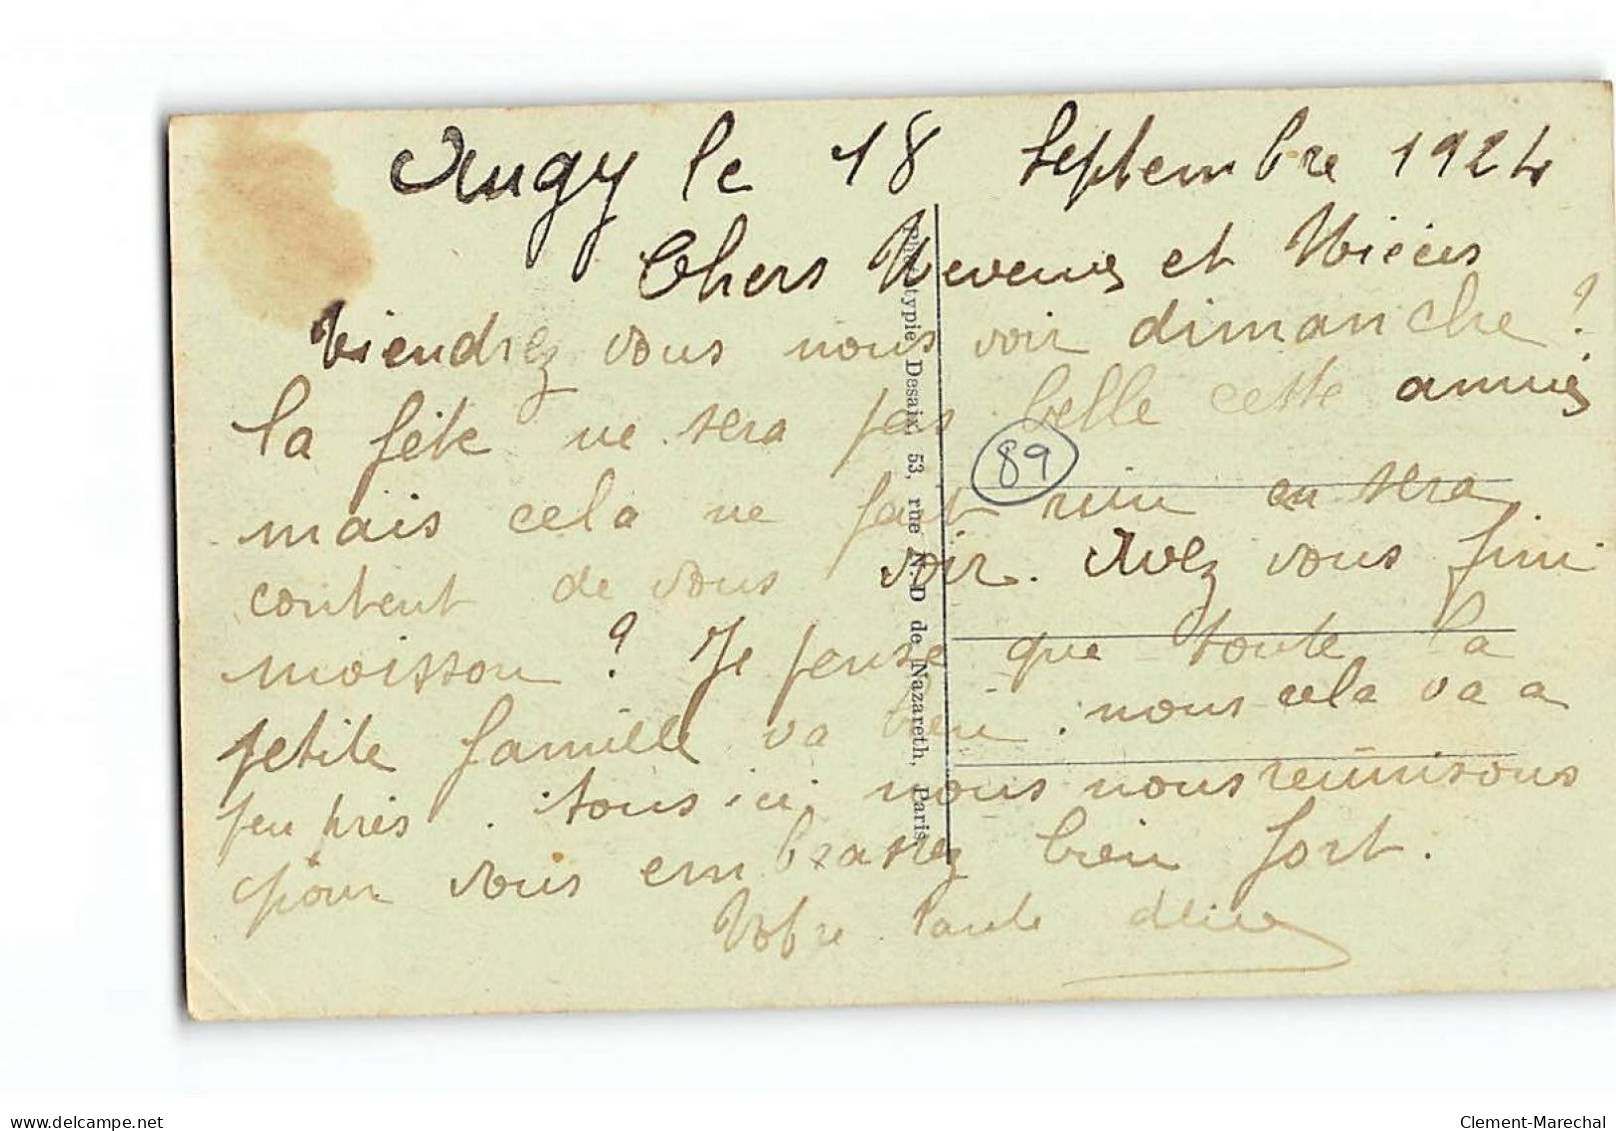 Augy le 18 Septembre 1924
Chers Neveus et Nieces
Viendrez vous nous voir dimanche ?
la fête ne sera pas belle cette année
mais cela ne fait rien on sera
content de vous voir. Avez vous fini
moisson ? Je pense que toute la
petite famille va bien. nous cela va a
peu près. tous ici, nous nous reunisons
pour vous embrassez bien fort.
Votre tante
89
Phototypie Desaix, 53, rue N.-D de Nazareth, Paris
delcampe.net
Clement-Marechal